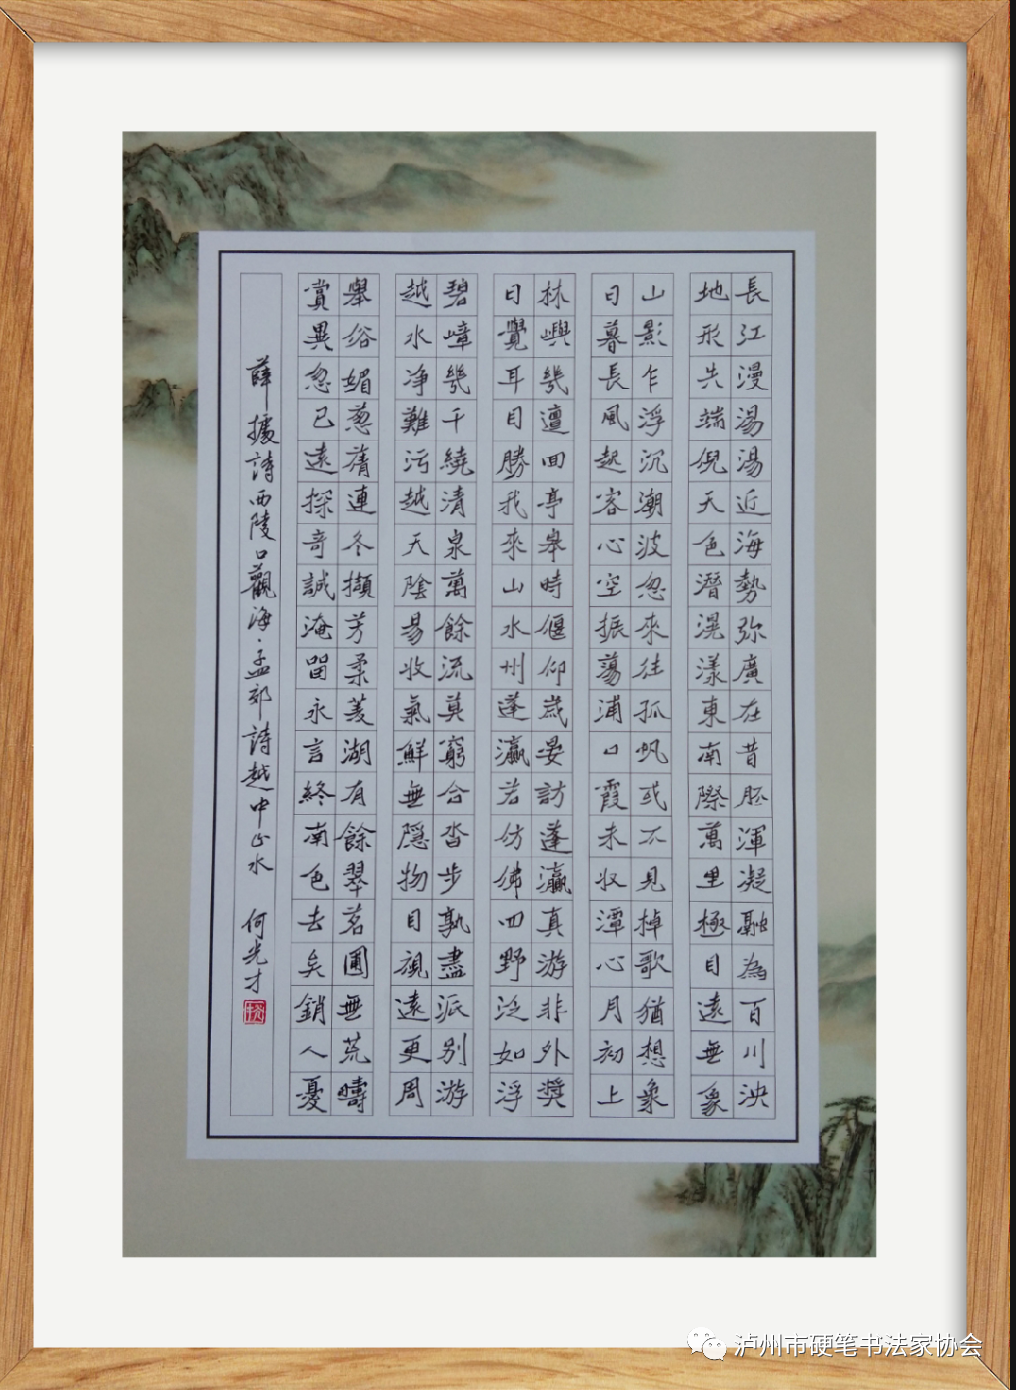 長江漫湯湯近海勢弥廣在昔胚渾凝融為百川泱
地形失端倪天色潛滉漾東南際萬里極目遠無象
山影乍浮沉潮波忽來往孤帆或不見棹歌猶想象
日暮長風起客心空振蕩浦口霞未收潭心月初上
林嶼幾邅回亭皋時偃仰歲晏訪蓬瀛真游非外獎
日覺耳目勝我來山水州蓬瀛若仿佛田野泛如浮
碧嶂幾千繞清泉萬餘流莫窮合沓步孰盡派别游
越水净難污越天陰易收氣鮮無隱物目視遠更周
舉俗媚葱蒨連冬擷芳柔菱湖有餘翠茗圃無荒疇
賞異忽已遠探奇誠淹留永言終南色去矣銷人憂
薛據詩西陵口觀海·孟郊詩越中山水 何光才
泸州市硬笔书法家协会